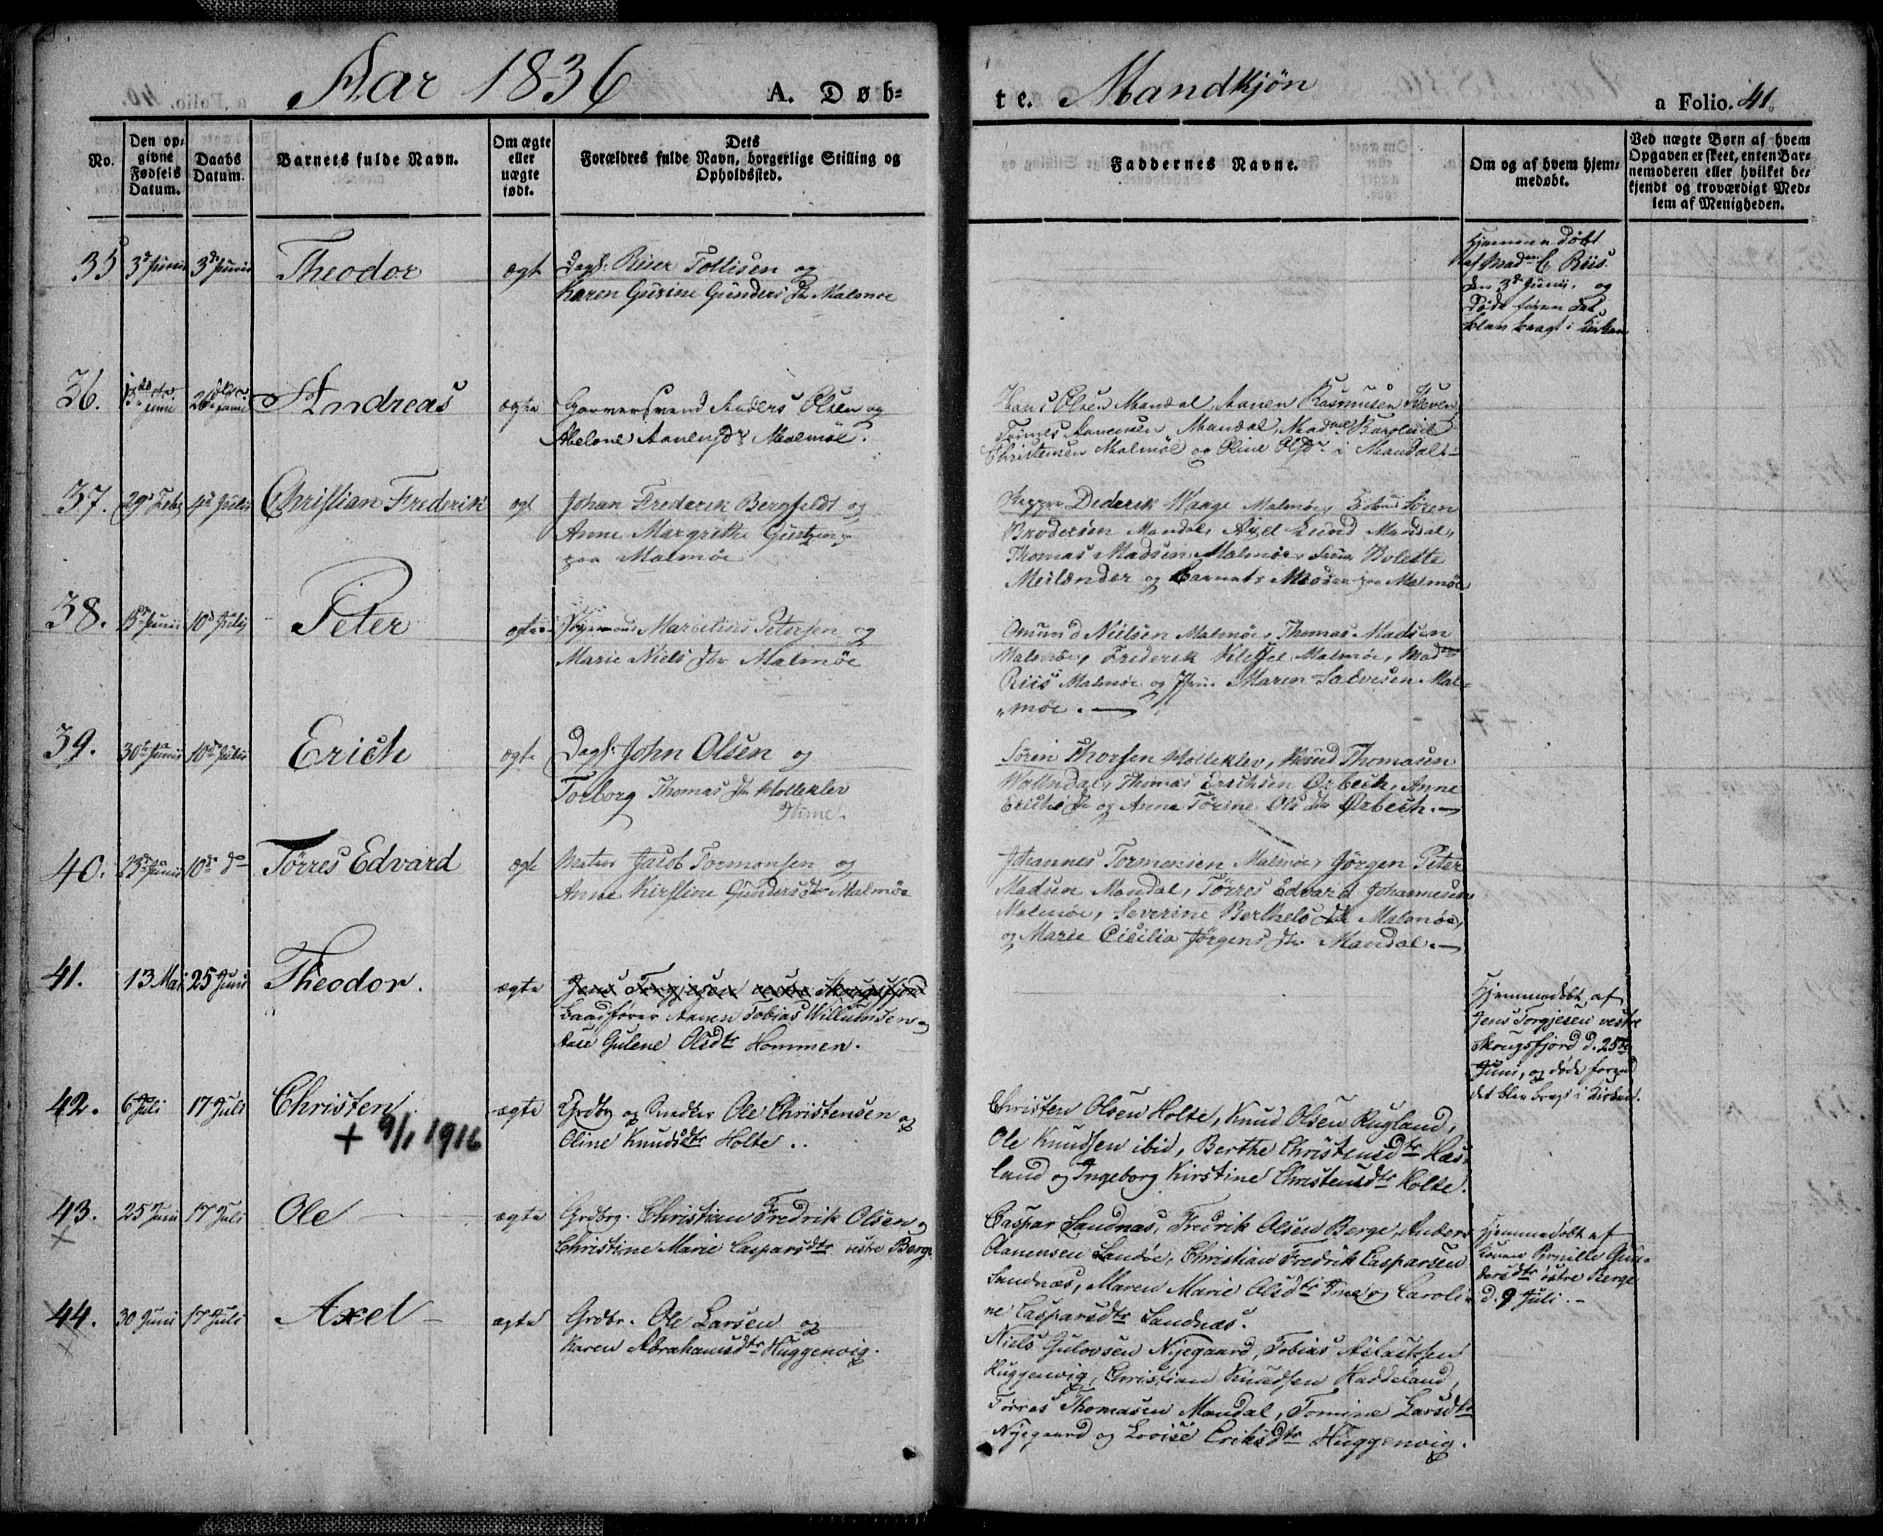 Aar 1836 A. Døb= te. Mandkjøn a Folio. 41.
No.
Den op=
givne
Fødsels
Datum.
Daabs
Datum.
Barnets fulde Navn.
Om ægte
eller
uægte
født.
Dets
Forældres fulde Navn, borgerlige Stilling og
Opholdssted.
Faddernes Navne.
Om og af hvem hjem=
medøbt.
Ved uægte Børn af hvem
Opgaven er skeet, enten Bar=
nemoderen eller hvilket be=
kjendt og troværdigt Med=
lem af Menigheden.
35 3d Junii 3d Junii Theodor ægte Dagl: Reier Tollisen og
Karen Gurine Gunders Dtr Malmøe
Hjemmedøbt
af Madm C Riis
den 3d Junii, og
døde foren det
blev bragt i Kirken
36. Junii Junii Andreas ægte Garversvend Anders Olsen og
Abelone Aanensdr Malmøe.
Hans Olsen Mandal, Aanen Rasmusen
Aanensen Mandal, Madme
Christensen Malmøe og Oline Olsdr i Mandal
37. 29d Feb 4d Julii Christian Frederik ægt Johan Frederik Bergfeldt og
Anne Margrethe
paa Malmøe
Dederik Waage Malmøe, Søren
Brodersen Mandal, Axel Lund Mandal,
Thomas Madsen Malmøe, Bolette
Meilænder og Barnets Moder paa Malmøe
38. 15d Junii 10d Julij Peter ægte Marcelius Petersen og
Marie Niels Dtr Malmøe
Omund Nielsen Malmøe, Thomas Madsen
Malmøe, Frederik Malmøe, Madme
Riis Malmøe og Maren Salvesen Mal=
møe. —
39. 30d Junii 10d Julii Erich ægte Dagl: John Olsen og
Torborg Thomas Dtr Holleklev
Hime.
Søren Thorsen Holleklev, Knud Thomasen
Thomas Erichsen Ørbech, Anne
Erichs Dr og Anne Torine Ols Dtr Ørbech. —
40. Junii 10d Do Tørres Edvard ægt Matros Jacob Tormonsen og
Anne Kirstine Gundersdtr Malmøe
Johannes Tormonsen Malmøe, Jørgen Peter
Madsen Mandal, Tørres Edvard Johannesen
Malmøe, Severine Berthels Dtr Malmøe,
og Marie Cicilia Jørgens Dtr Mandal. —
41. 13 Mai 25 Junii Theodor. ægte Jens Torgjesen vestre Skougsfjord
Baadfører Aanen Tobias Willumsen og
Aase Gulene Olsdtr Hommen.
Hjemmedøbt af
Jens Torgjesen vestre
Skougsfjord d. 25de
Juni, og døde forend
det blev bragt i Kirken.
42. 6 Juli 17 Juli Christen ægte Grdbr og Smeder Ole Christensen og
Oline Knudsdtr Holte.
+ 9/1 1916
Christen Olsen Holte, Knud Olsen Rugland,
Ole Knudsen ibid, Berthe Christensdtr Hæs=
land og Ingeborg Kirstine Christensdtr Holte.
43. 25 Juni 17 Juli Ole ægte Grdbrg. Christian Fredrik Olsen og
Christine Marie Caspersdtr vestre Berge
Caspar Sandnæs, Fredrik Olsen Berge, Anders
Aanensen Sandøe, Christian Fredrik Casparsen
Sandnæs, Maren Marie Olsdtr og Caroli=
ne Casparsdtr Sandnæs.
Hjemmedøbt af
Konen Pernille Gun=
dersdtr østre Berge
d. 9 Juli. —
44. 30 Juni 17 Juli Axel ægte Grdbr. Ole Larsen og
Karen Abrahamsdtr Huggenvig.
Niels Gulovsen Nyegaard, Tobias Aslacksen
Huggenvig, Christian Knudsen Haddeland,
Tørres Thomasen Mandal, Tomine Larsdtr
Nyegaard og Lovise Eriksdtr Huggenvig.